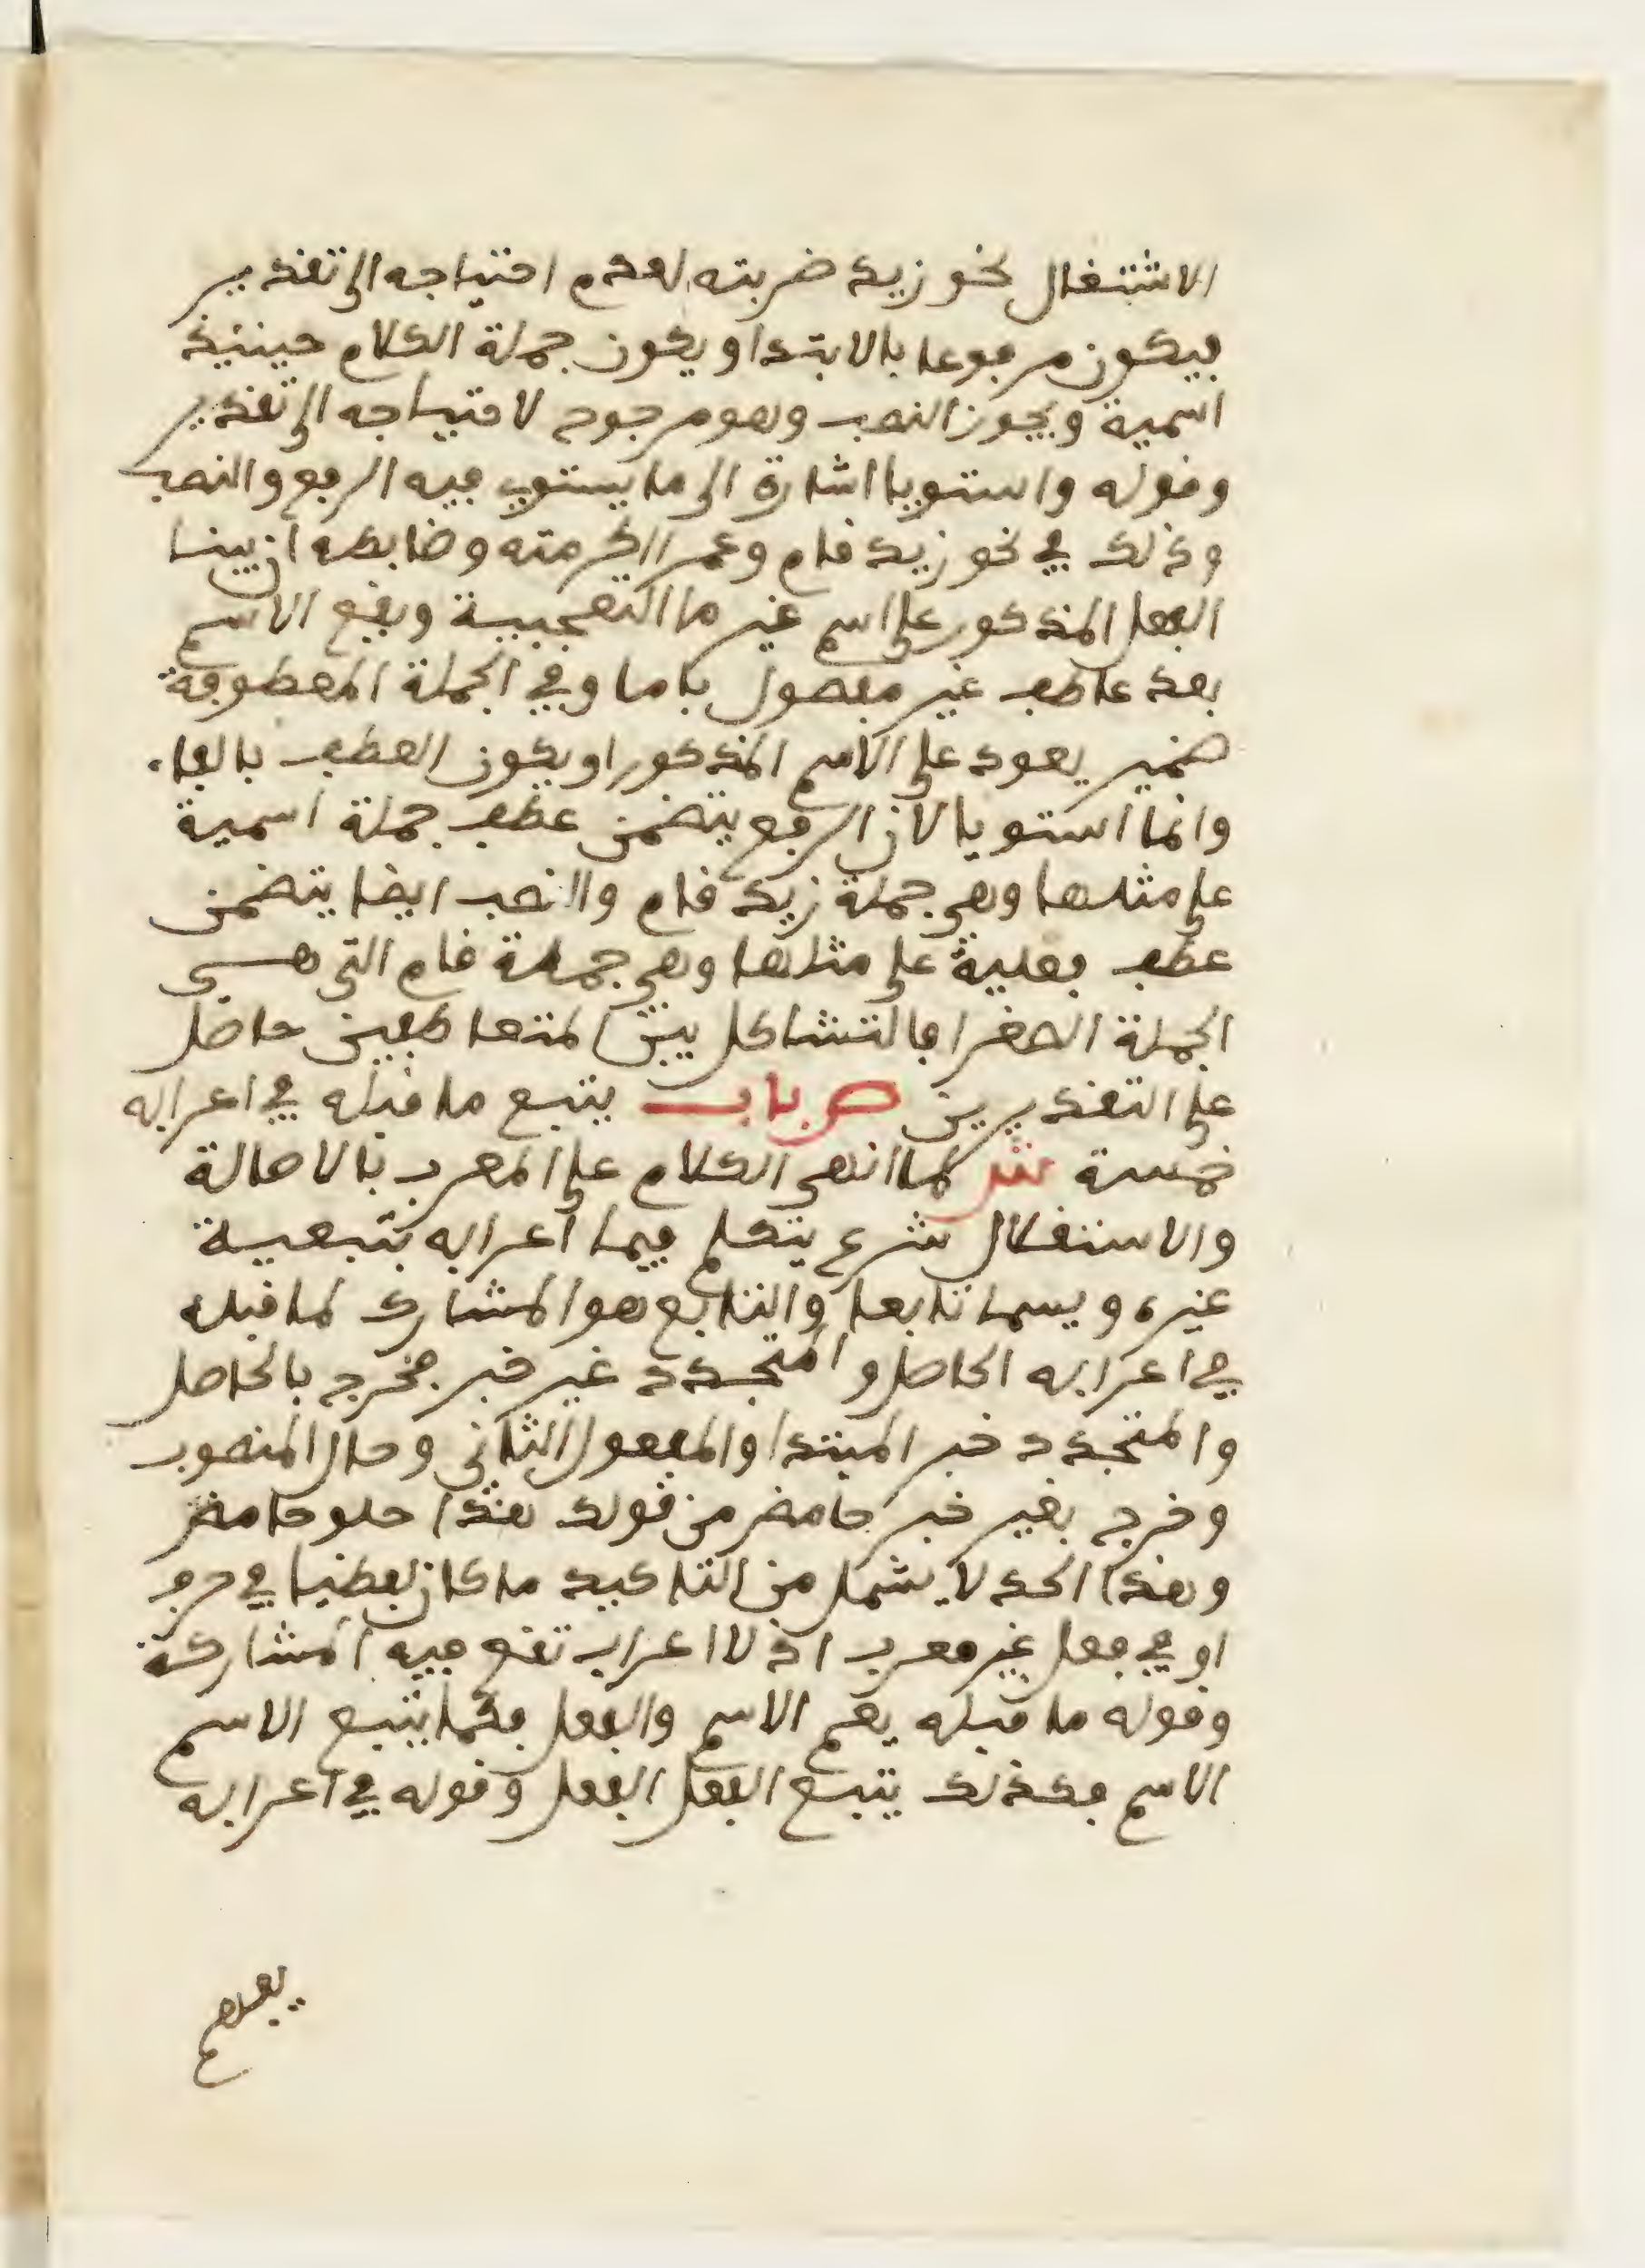 الاشتغال نحو زيد ضربته لعدم احتياجه الى تقدير
فيكون مرفوعا بالابتدا ويكون جملة الكلام حينئذ
اسمية ويجوز النصب وهو مرجوح لاحتياجه الى تقدير
وقوله واستويا اشارة الى ما يستوي فيه الرفع والنصب
وذلك في نحو زيد قام وعمرا اكرمته وضابطه ان يبنا
الفعل المذكور على اسم غير ما التعجبية ويقع الاسم
بعد عاطف غير مفصول باما وفي الجملة المعطوفة
ضمير يعود على الاسم المذكور او يكون العطف بالفاء
وانما استويا لان الرفع يتضمن عطف جملة اسمية
على مثلها وهي جملة زيد قام والنصب ايضا يتضمن
عطف فعلية على مثلها وهي جملة قام التي هي
الجملة الصغرا فالتشاكل بين المتعاطفين حاصل
على التقديرين ص باب يتبع ما قبله في اعرابه
خمسة ش لما انهى الكلام على المعرب بالاصالة
والاستقلال شرع يتكلم فيما اعرابه بتبعية
غيره ويسما تابعا والتابع هو المشارك لما قبله
في اعرابه الحاصل والمتجدد غير خبر فخرج بالحاصل
والمتجدد خبر المبتدا والمفعول الثاني وحال المنصوب
وخرج بغير خبر حامض من قولك هذا حلو حامض
وهذا الحد لا يشمل من التاكيد ما كان لفظيا في حرف
او في فعل غير معرب اذ لا اعراب تقع فيه المشاركة
وقوله ما قبله يعم الاسم والفعل فكما يتبع الاسم
الاسم فكذلك يتبع الفعل الفعل وقوله في اعرابه